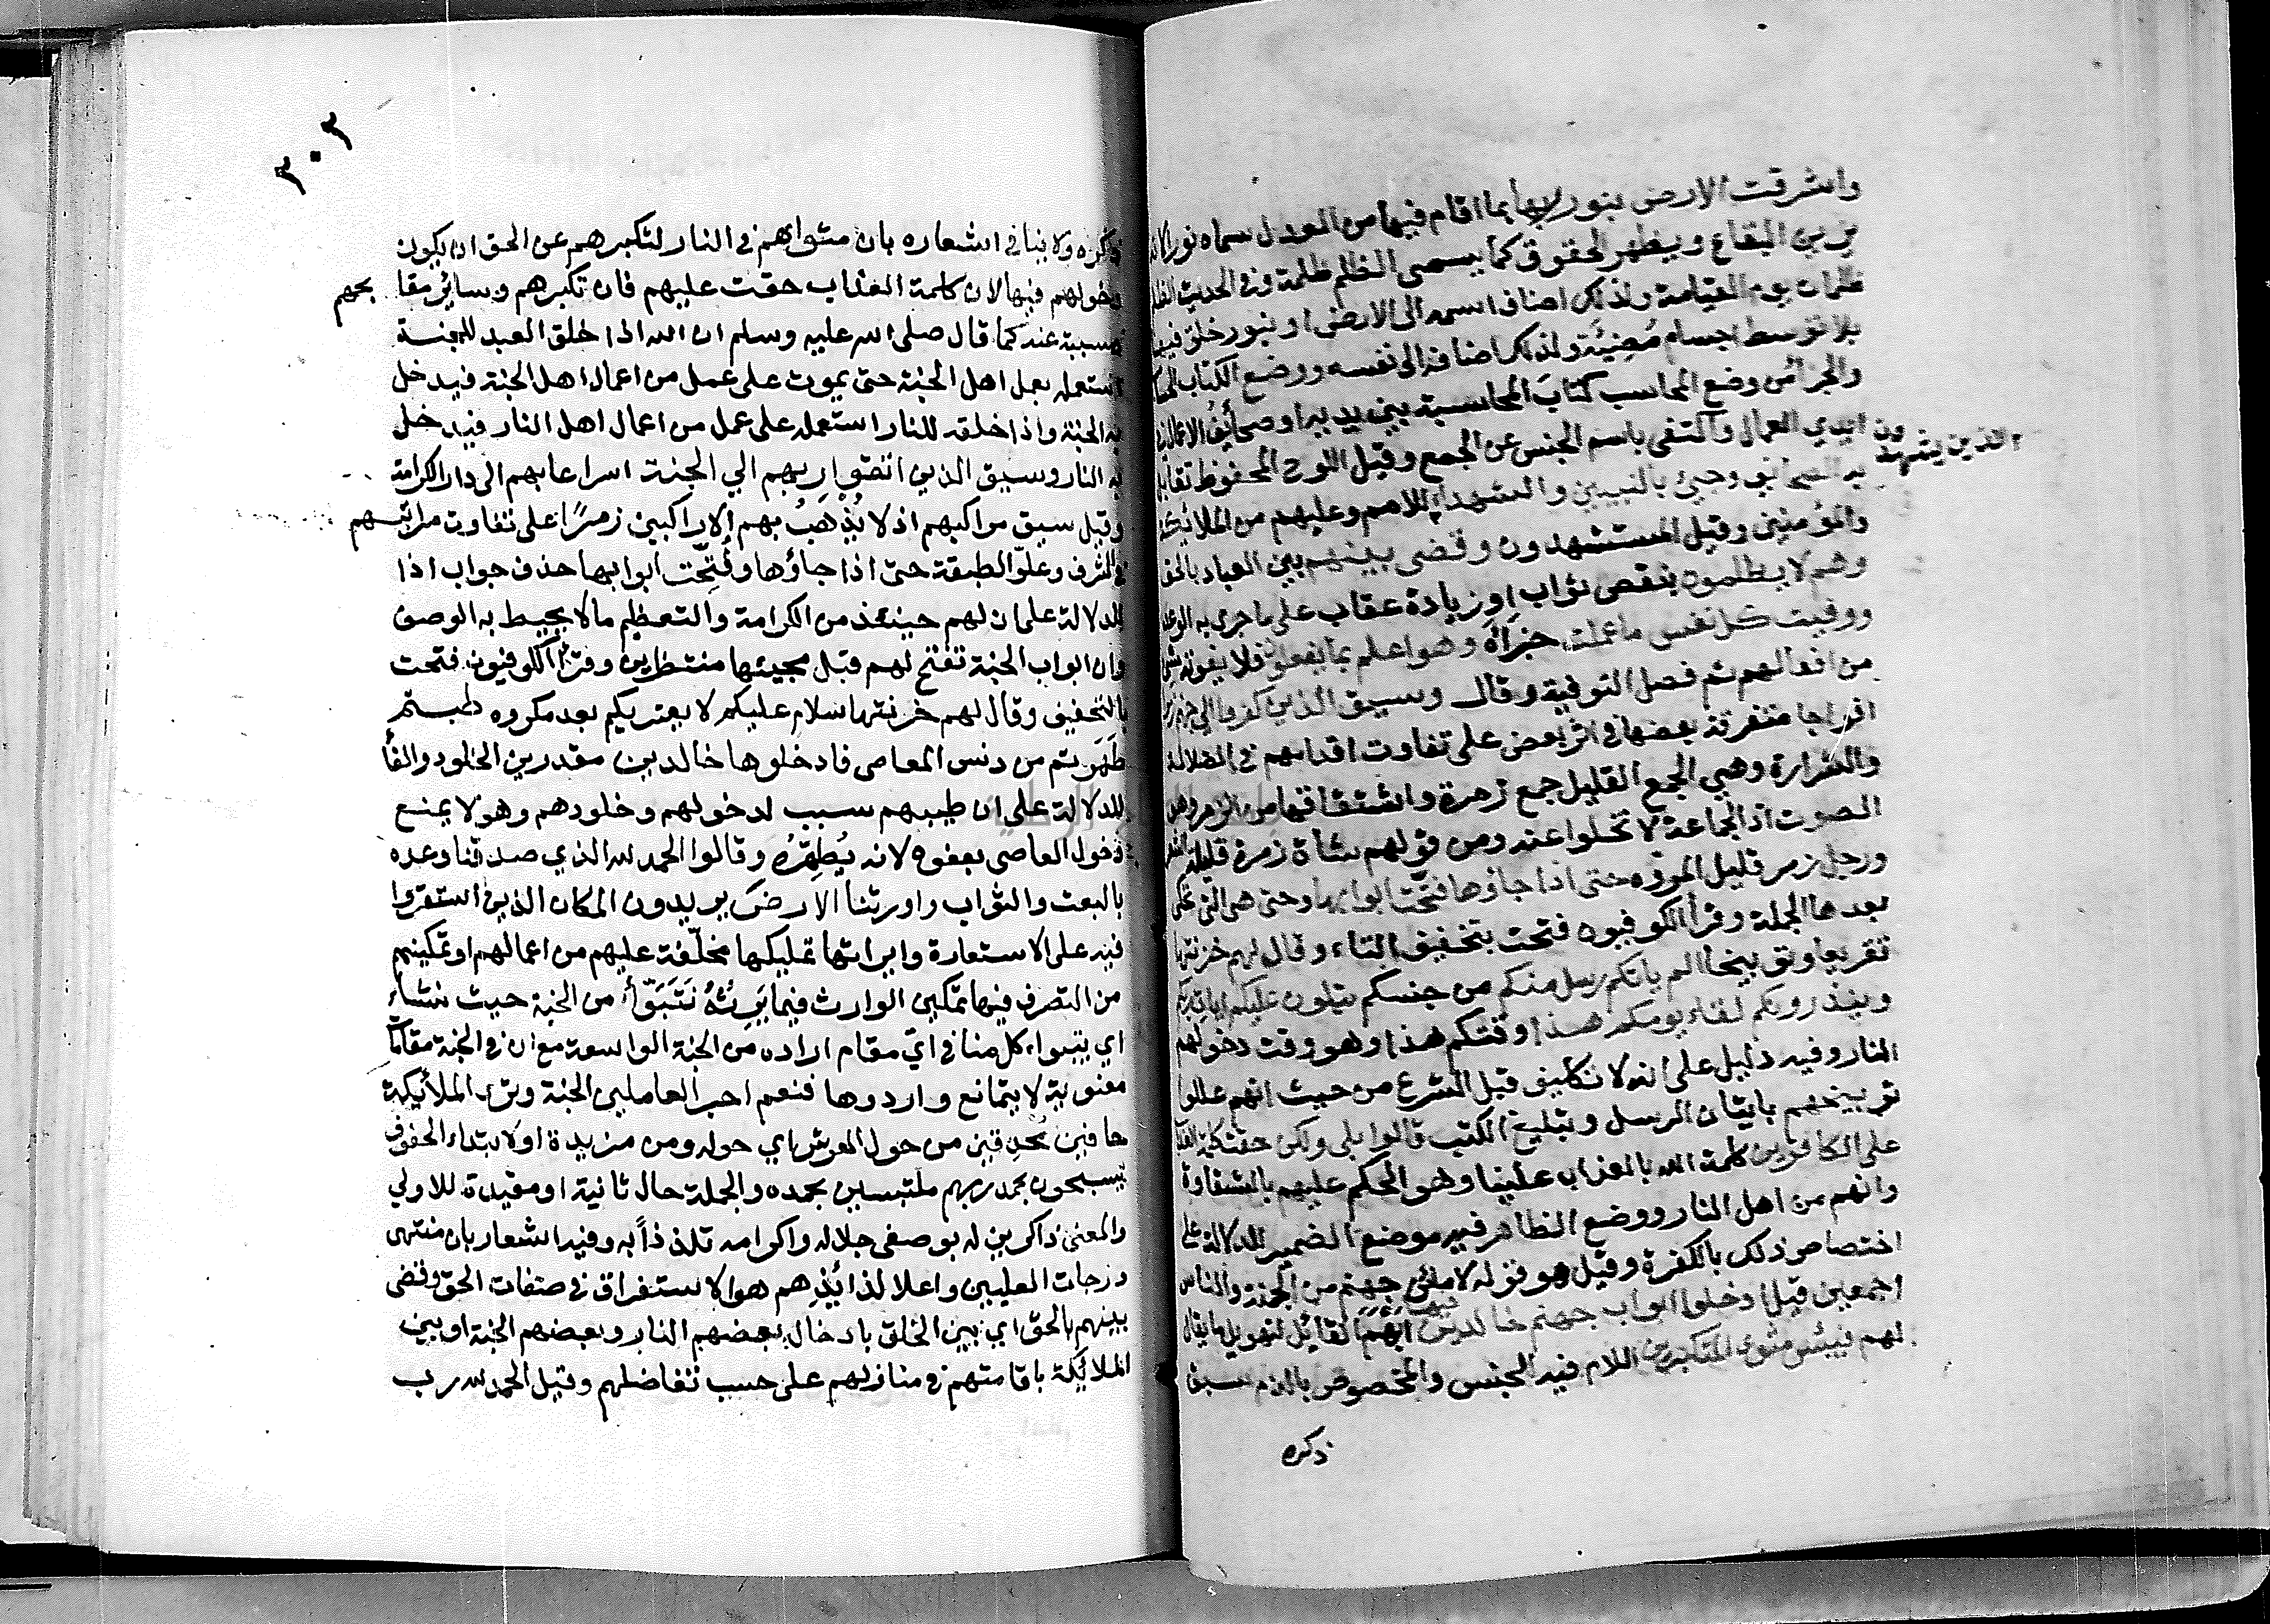 واشرقت الارض بنور ربها بما اقام فيها من العدل سماه نورا لانه
يزين البقاع ويظهر الحقوق كما يسمى الظلم ظلمة وفي الحديث الظلم
ظلمات يوم القيامة ولذلك اضاف اسمه الى الارض او بنور خلق فيها
بلا توسط اجسام مُضِيئَة ولذلك اضافه الى نفسه ووضع الكتاب الحساب
والجزاء من وضع المحاسب كتابَ المحاسبة بين يديه او صحائِفُ الاعمال في
ايدي العمال واكتفى باسم الجنس عن الجمع وقيل اللوح المحفوظ تقابل
به الصحائف وجيئ بالنبيين والشهداء للامم وعليهم من الملائكة
الذين يشهدون
والمؤمنين وقيل المستشهدون وقضى بينهم بين العباد بالحق
وهم لا يظلمون بنقص ثواب او زيادة عقاب على ما جرى به الوعد
ووفيت كل نفس ما عملت جزاؤه وهو اعلم بما يفعلون فلا يفوته شئ
من افعالهم ثم فصل التوفية وقال وسيق الذين كفروا الى جهنم زمرا
افواجا متفرقة بعضها في اثر بعض على تفاوت اقدامهم في الضلالة
والشرارة وهي الجمع القليل جمع زمرة واشتقاقها من الزمر وهو
الصوت اذ الجماعة لا تخلوا عنه ومن قولهم شاة زمرة قليلة الشعر
ورجل زمر قليل المروة حتى اذا جاؤها فتحت ابوابها وحتى هي التي تحكى
بعدها الجملة وقرأ الكوفيون فتحت بتخفيف التاء وقال لهم خزنتها
تقريعا وتوبيخا الم ياتكم رسل منكم من جنسكم يتلون عليكم ايات ربكم
وينذرونكم لقاء يومكم هذا وقتكم هذا وهو وقت دخولهم
النار وفيه دليل على انه لا تكليف قبل الشرع من حيث انهم عللوا
توبيخهم باتيان الرسل وتبليغ الكتب قالوا بلى ولكن حقت كلمة العذاب
على الكافرين كلمة الله بالعذاب علينا وهو الحكم عليهم بالشقاوة
وانهم من اهل النار ووضع الظاهر فيه موضع الضمير للدلالة على
اختصاص ذلك بالكفرة وقيل هو قوله لاملئن جهنم من الجنة والناس
اجمعين قيل ادخلوا ابواب جهنم خالدين فيها ابهم القائل لتهويل ما يقال
لهم فبئس مثوى المتكبرين اللام فيه للجنس والمخصوص بالذم سبق
ذكره
ذكره ولا ينافي اشعاره بان مثواهم في النار لتكبرهم عن الحق ان يكون
دخولهم فيها لان كلمة العذاب حقت عليهم فان تكبرهم وسائر مقابحهم
مسببة عنه كما قال صلى الله عليه وسلم ان الله اذا خلق العبد للجنة
استعمله بعمل اهل الجنة حتى يموت على عمل من اعمال اهل الجنة فيدخل
به الجنة واذا خلقه للنار استعمله على عمل من اعمال اهل النار فيدخل
به النار وسيق الذين اتقوا ربهم الي الجنة اسراعا بهم الى دار الكرامة
وقيل سيق مراكبهم اذ لا يُذْهَبُ بهم الا راكبين زمرًا على تفاوت مراتبهم
في الشرف وعلوّ الطبقة حتى اذا جاؤها وفُتِحّت ابوابها حذف جواب اذا
للدلالة على ان لهم حينئذ من الكرامة والتعظيم ما لا يحيط به الوصف
وان ابواب الجنة تفتح لهم قبل مجيئها منتظرين وقرأ الكوفيون فتحت
بالتخفيف وقال لهم خزنتها سلام عليكم لا يعتريكم بعد مكروه طبتم
طَهَرتم من دنس المعاصى فادخلوها خالدين مقدرين الخلود والفأ
للدلالة على ان طيبهم سبب لدخولهم وخلودهم وهو لا يمنع
دخول العاصى بعفوه لانه يُطِهّرُه وقالوا الحمد لله الذي صدقنا وعده
بالبعث والثواب واورثنا الارضَ يريدون المكان الذين استقروا
فيه على الاستعارة وايراثها تمليكها مخلّفة عليهم من اعمالهم او تمكينهم
من التصرف فيها تمكين الوارث فيما يَرِثُهُ نَتَبَوّأُ من الجنة حيث نشاء
اي يتبواء كل منا في ايّ مقام اراده من الجنة الواسعة مع ان في الجنة مقامات
معنوية لا يتمانع واردوها فنعم اجر العاملين الجنة وترى الملائيكة
حافين مُحدِقين من حول العرش اي حوله ومن مزيدة او لابتداء الحفوف
يسبحون بحمد ربهم ملتبسين بحمده والجملة حال ثانية او مقيدة للاولي
والمعنى ذاكرين له بوصفى جلاله واكرامه تلذذاً به وفيه اشعار بان منتهى
درجات العليين واعلا لذائِذِهم هو الاستغراق في صفات الحق وقضى
بينهم بالحق اي بين الخلق بادخال بعضهم النار وبعضهم الجنة او بين
الملائيكة باقامتهم في منازلهم على حسب تفاضلهم وقيل الحمد لله رب
٣٠٣